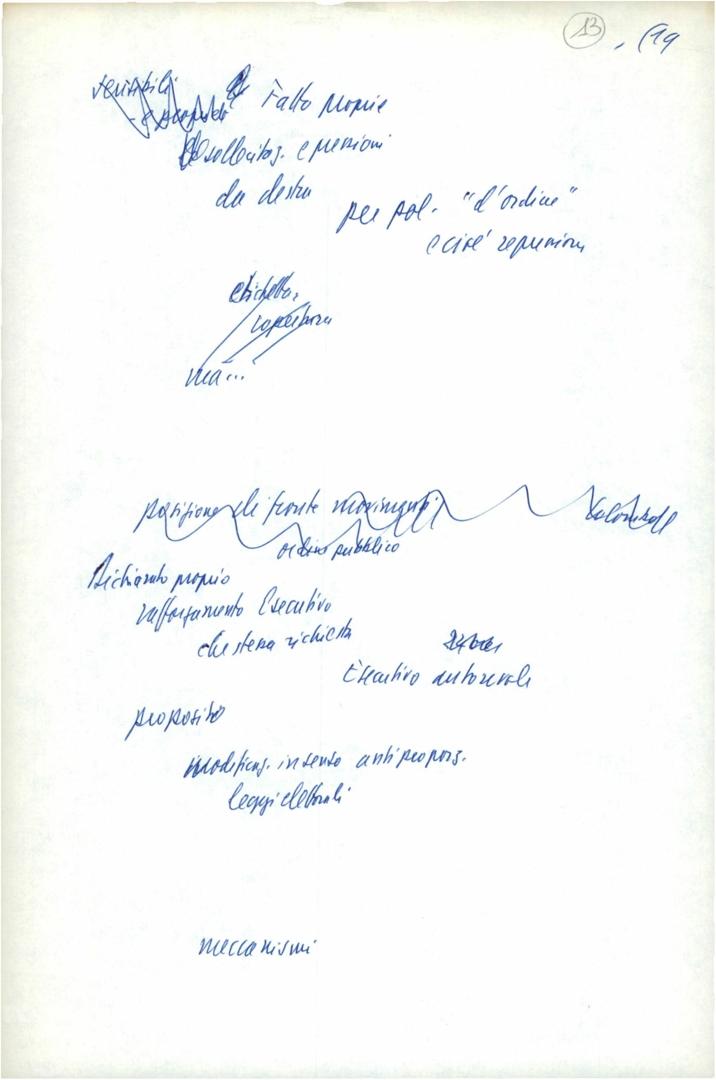 13 (19
sensibili
Fatto proprie
sollecitaz. e pressioni
da destra
per pol. "d'ordine"
e cioè repressiva
etichetta,
copertura
ma...
posizione di fronte movimenti
ordine pubblico
proprio
rafforzamento Esecutivo
che stessa richiesta
Esecutivo autorevole
proposito
modificaz. in senso antiproporz.
leggi elettorali
meccanismi